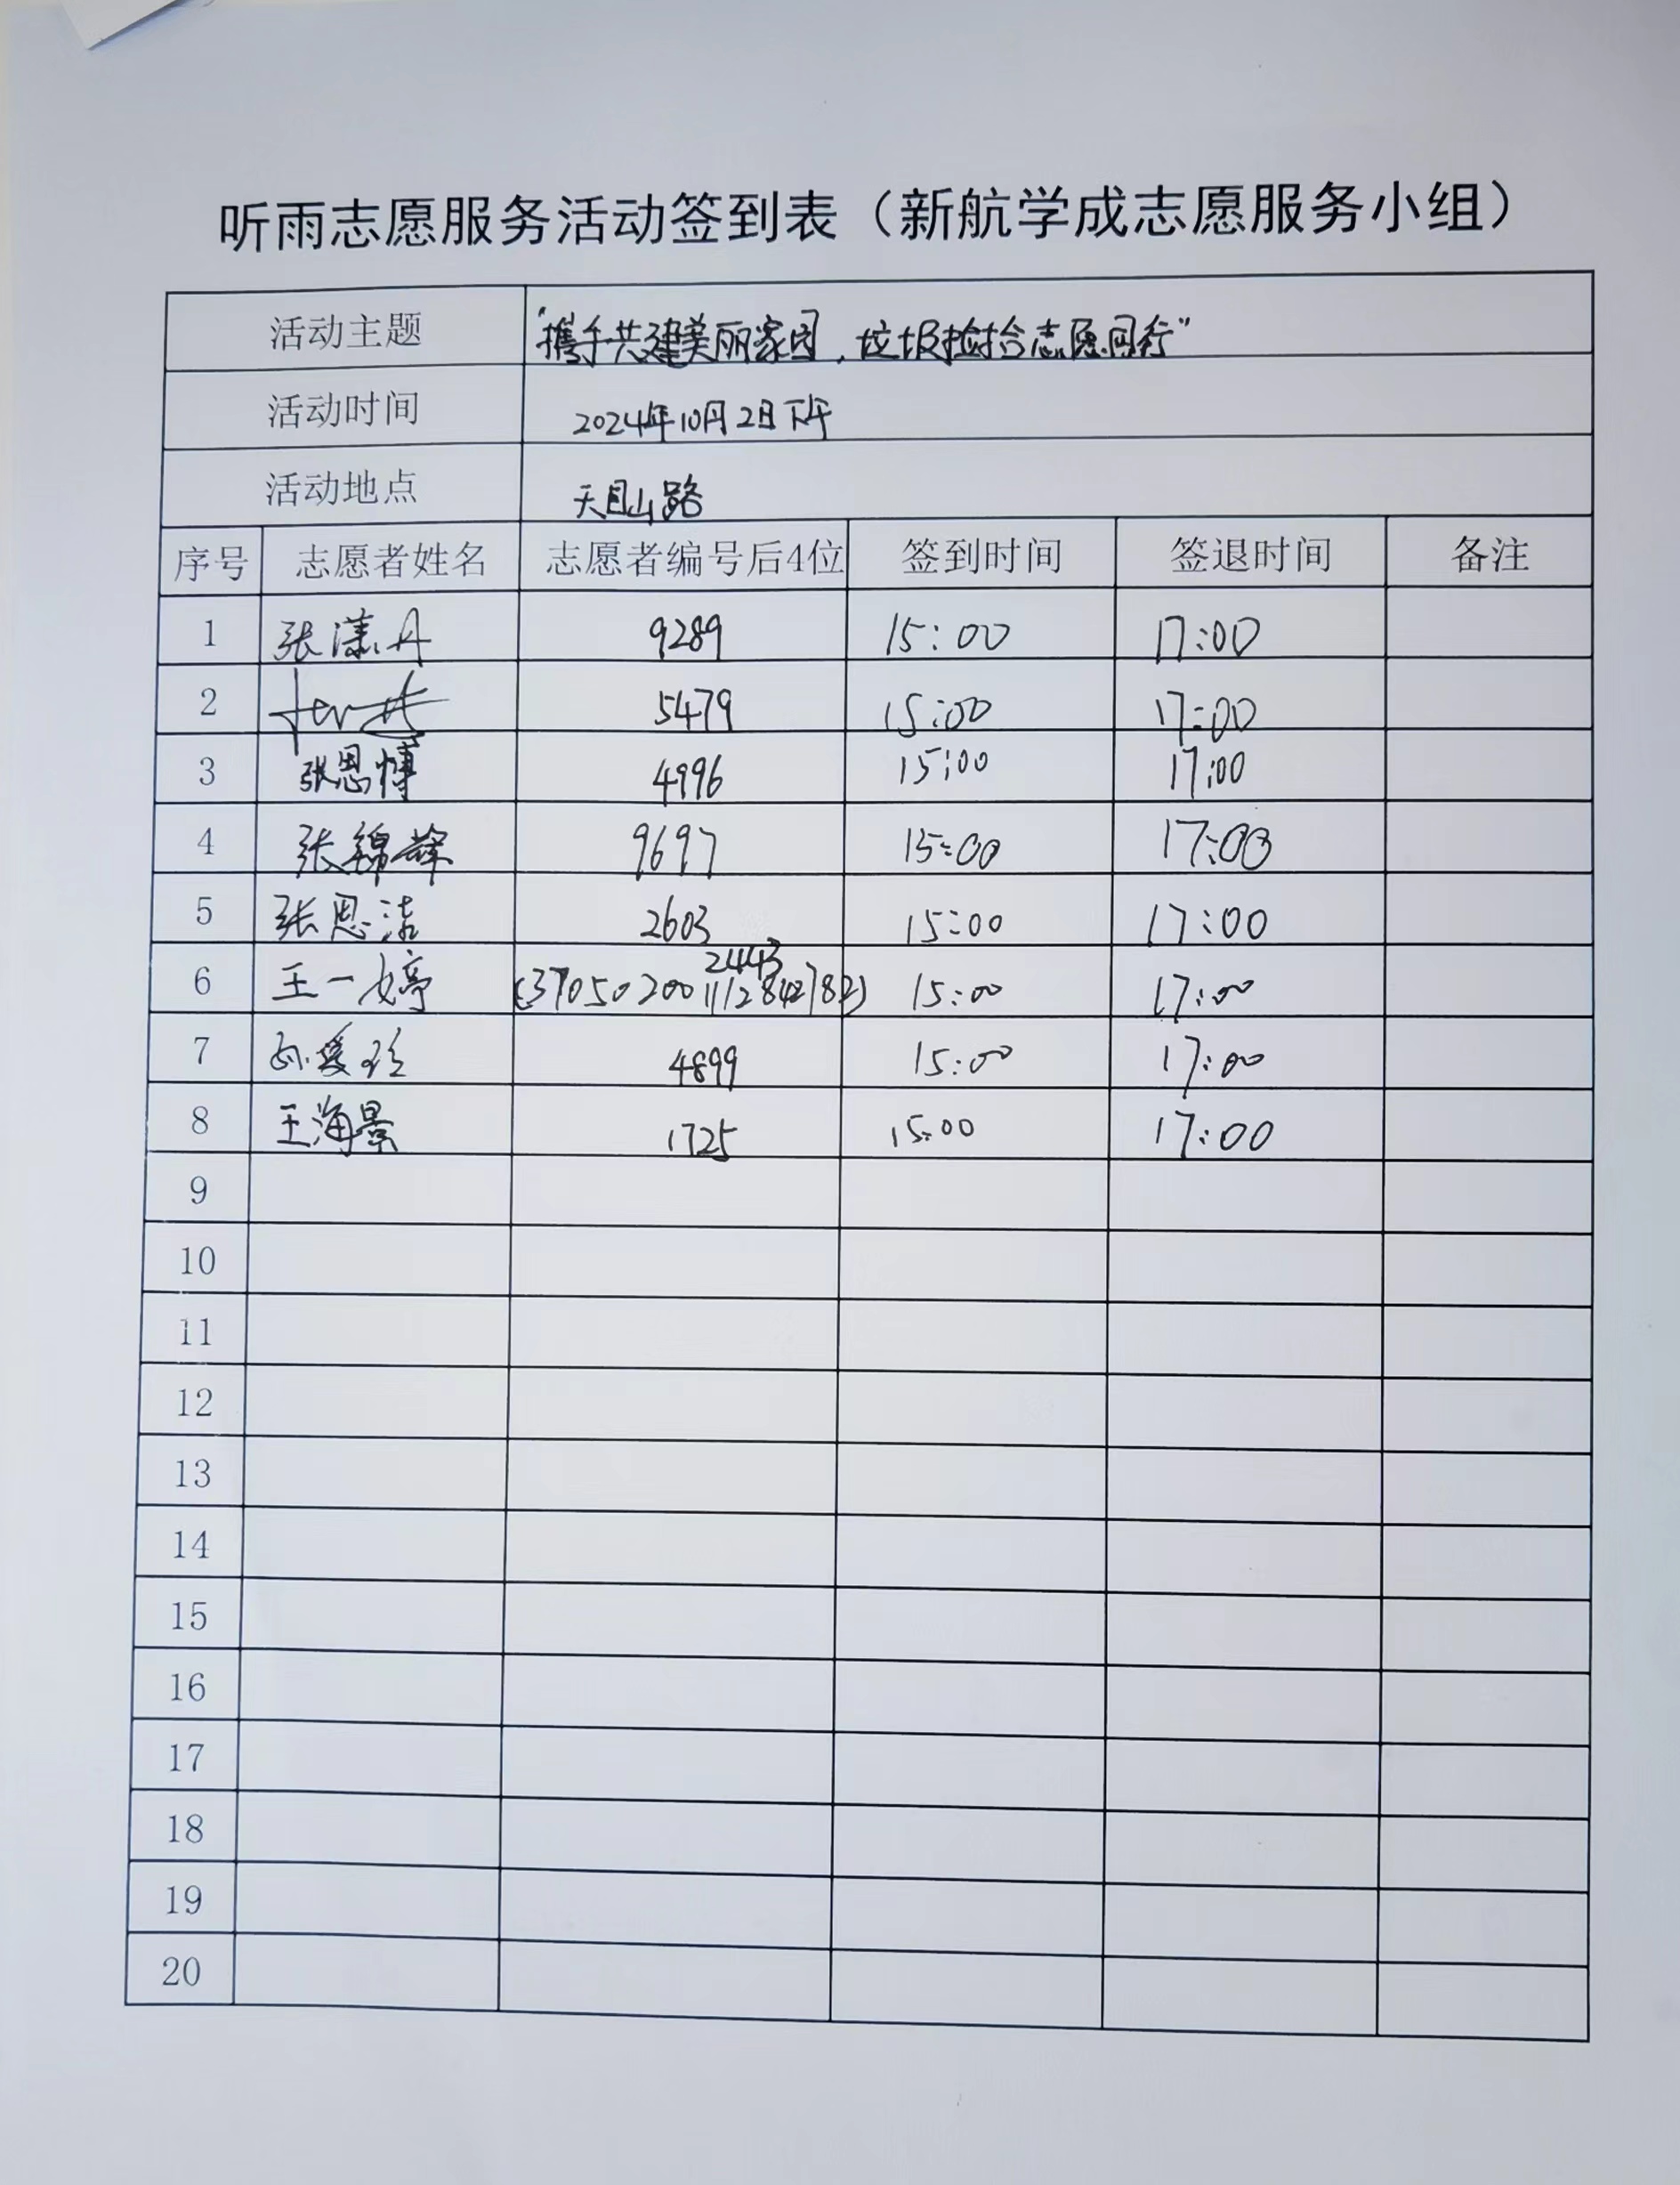 听雨志愿服务活动签到表（新航学成志愿服务小组）
活动主题 “携手共建美丽家园，垃圾捡拾志愿同行”
活动时间 2024年10月2日下午
活动地点 天目山路
序号 志愿者姓名 志愿者编号后4位 签到时间 签退时间 备注
1 张潇丹 9289 15:00 17:00
2 5479 15:00 17:00
3 张恩博 4996 15:00 17:00
4 张锦 9697 15:00 17:00
5 张恩洁 2603 15:00 17:00
2443
6 王一婷 15:00 17:00
7 孙爱珍 4899 15:00 17:00
8 王海景 1725 15:00 17:00
9
10
11
12
13
14
15
16
17
18
19
20